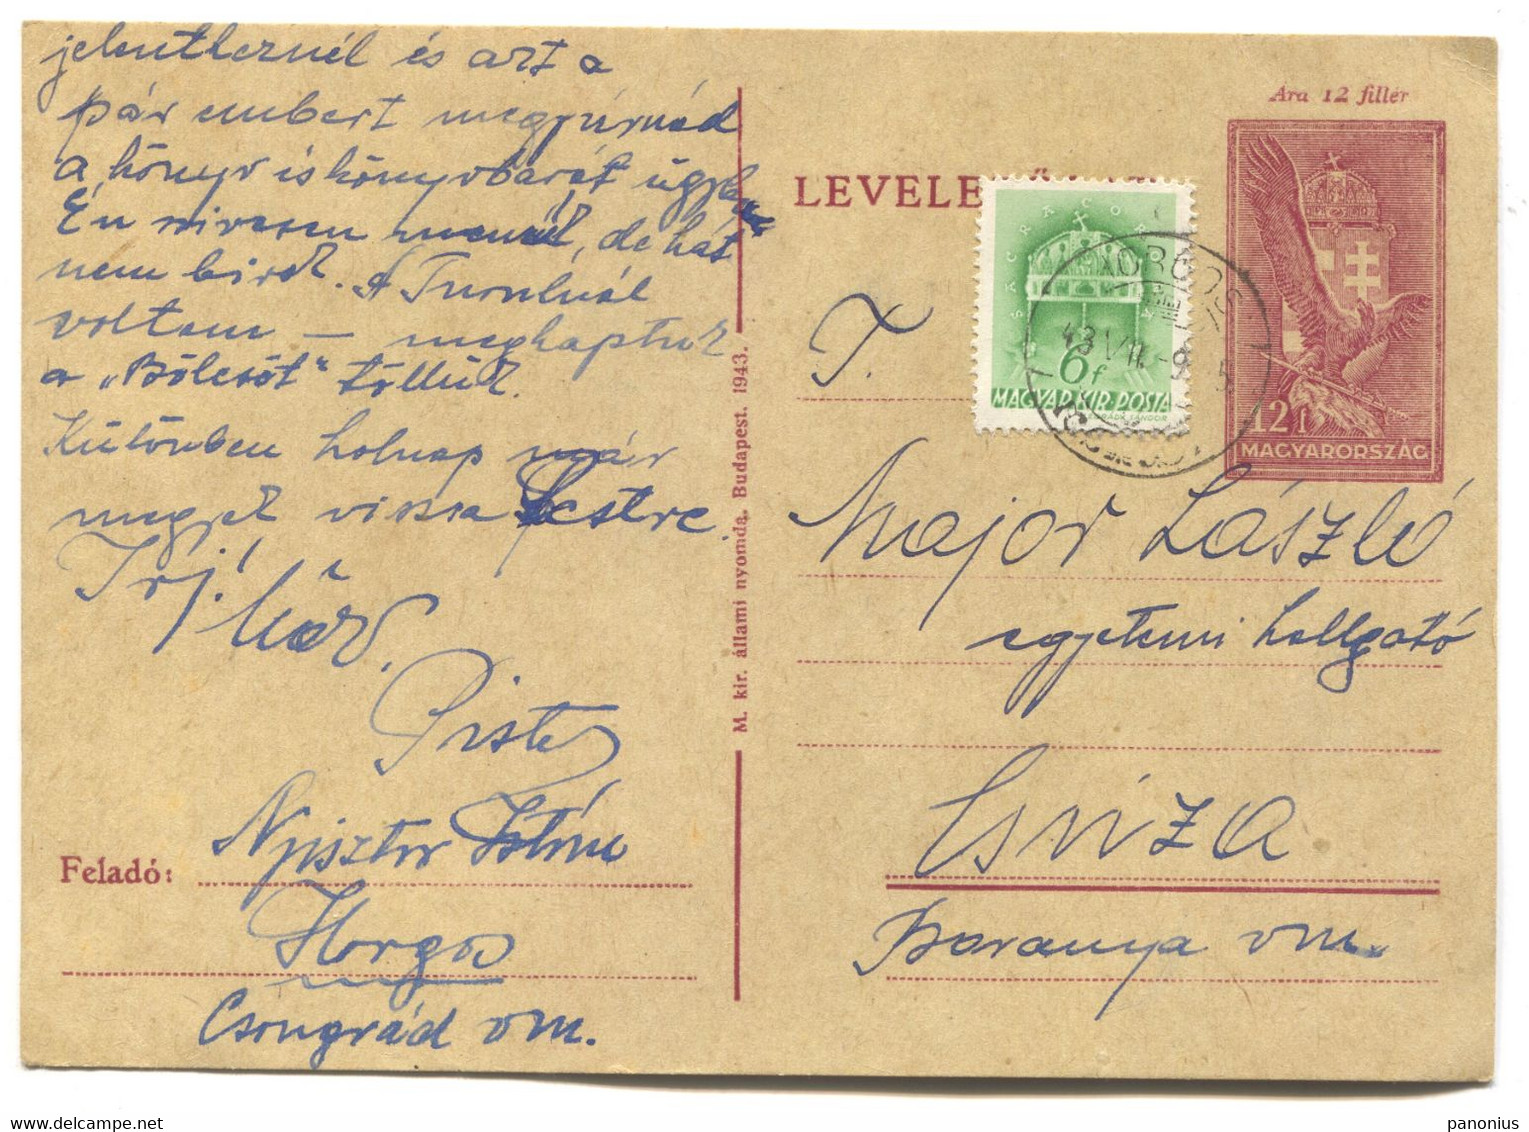 jelentkeznél és azt a
pár embert megpuhítanád
a könyv és könyvbarát ügyben
Én szívesen mennék, de hát
nem bírok. A Turulnál
voltam – megkaptuk
a „Bölcsőt" tőllük.
Különben holnap már
megyek vissza Pestre.
Írj!
Pista
Feladó: Nyisztor István
Horgos
Csongrád vm.
M. kir. állami nyomda. Budapest. 1943.
Ára 12 fillér
LEVELE
SACRA CORONA
6f
MAGYAR KIR. POSTA
HORGOS
43 VII. 9.
12 f
MAGYARORSZÁG
T.
Major László
egyetemi hallgató
Csúza
Baranya vm.
panonius